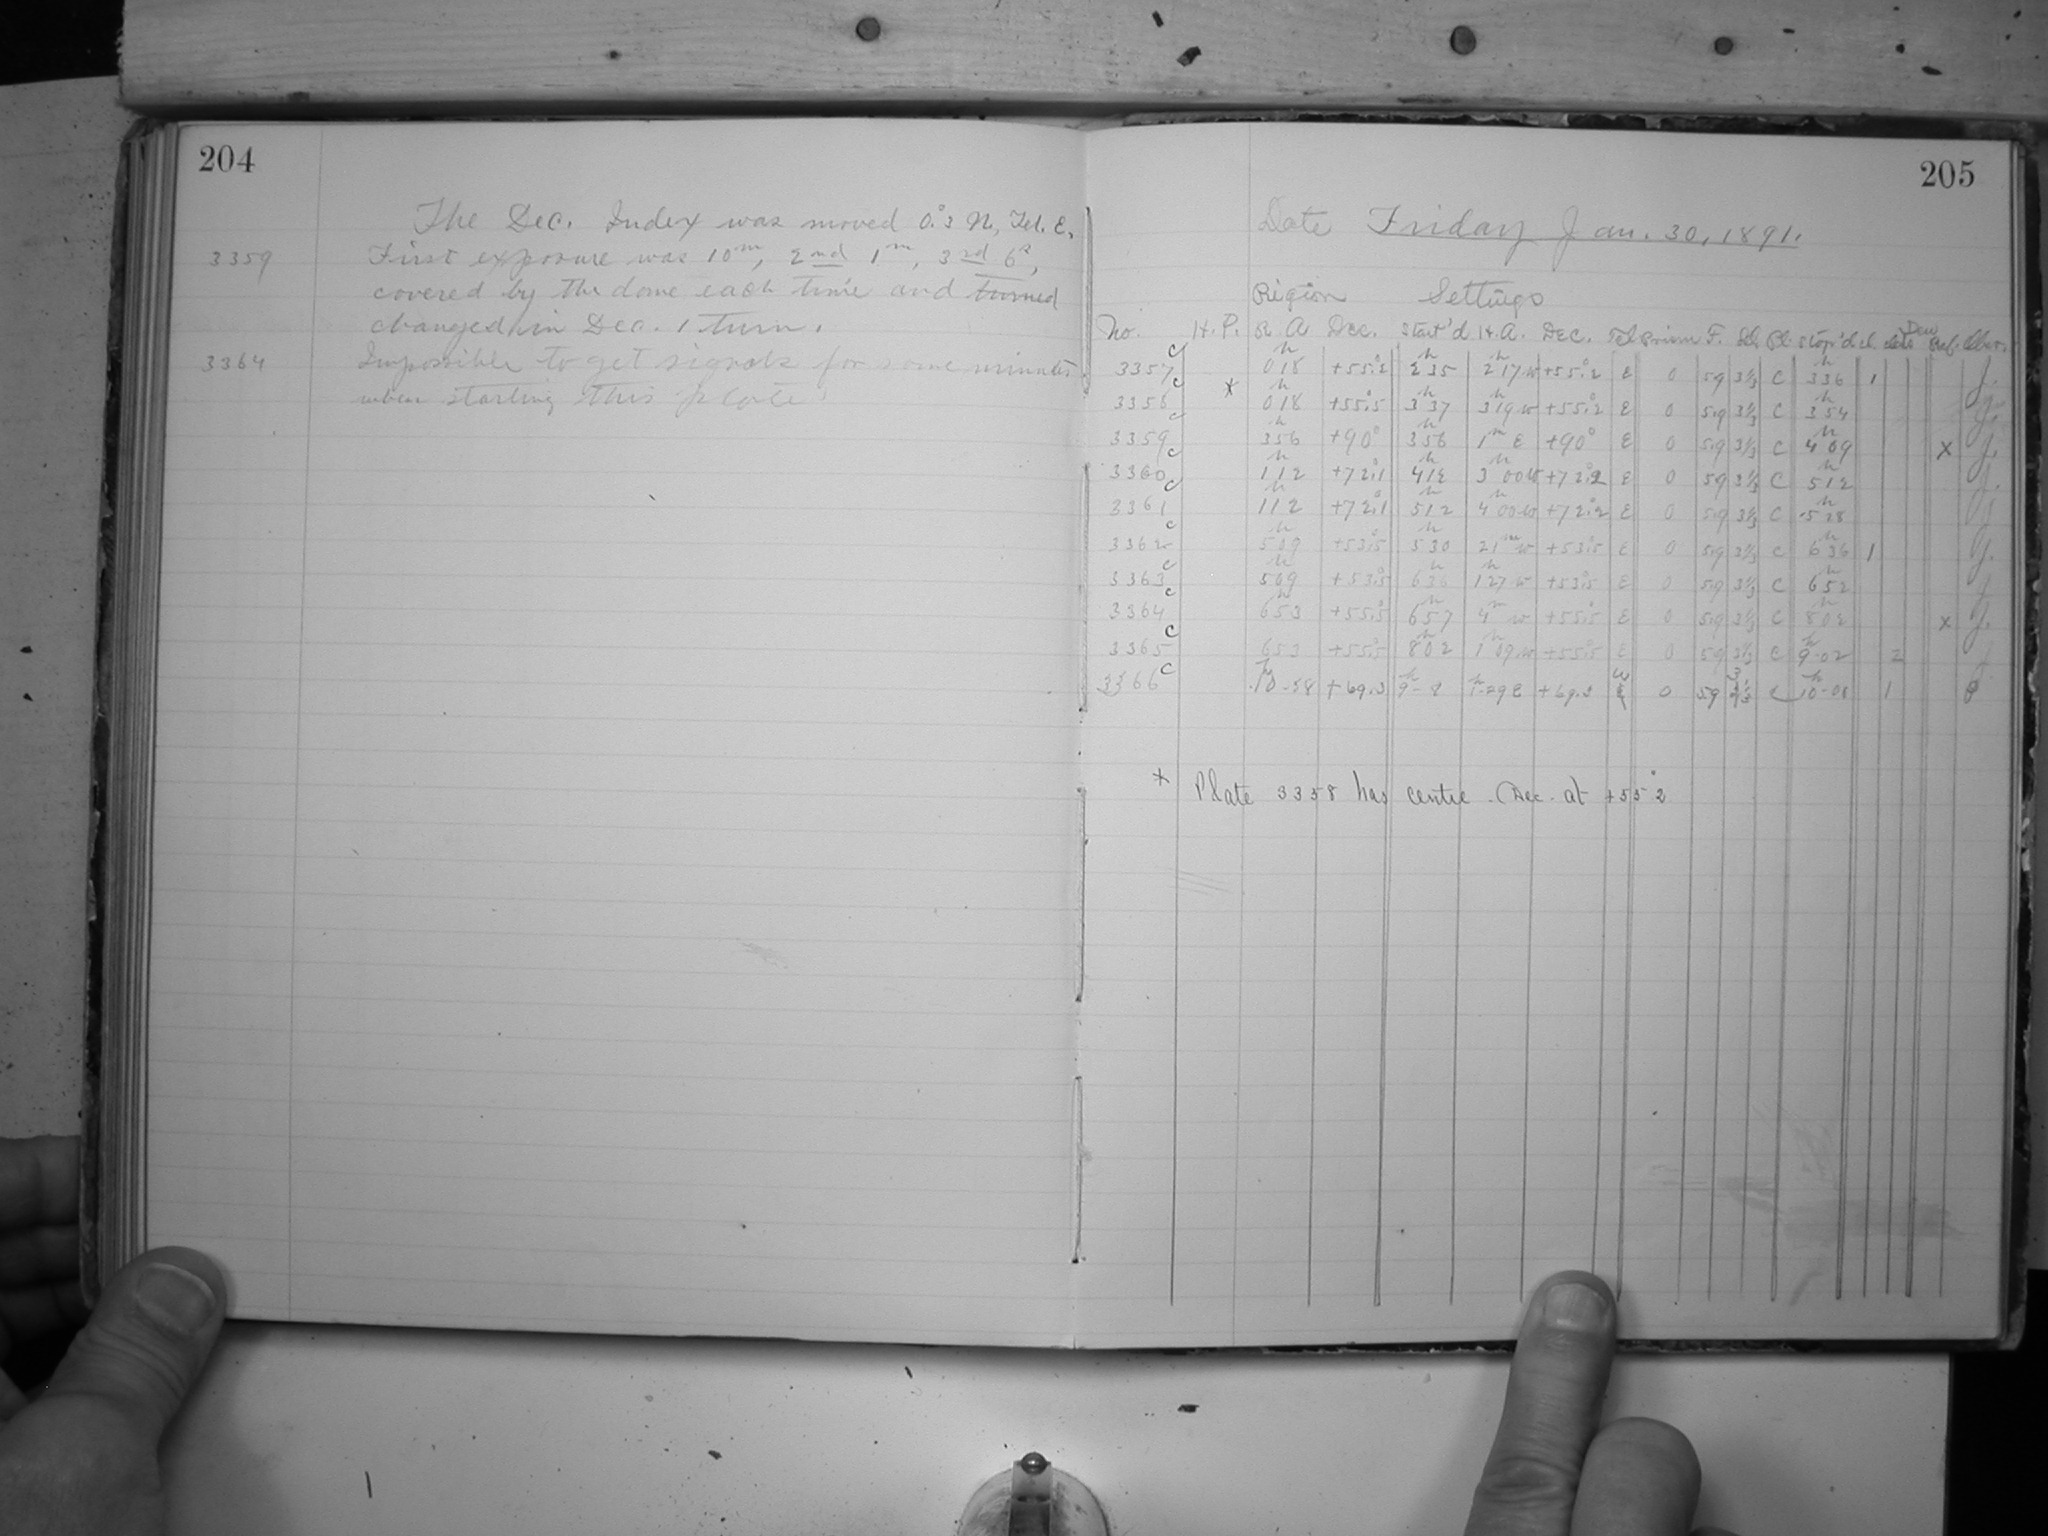 204
The Dec. Index was moved 0.°3 N, Tel. E.
3359 First exposure was 10m, 2nd 1m, 3rd 6s,
covered by the dome each time and turned
changed in Dec. 1 turn.
3364 Impossible to get signals for some minutes
when starting this plate.
205
Date Friday Jan. 30, 1891.
Region Settings
No. H. P. R. A Dec. Start'd H. A. Dec. Tel Prism F. Pl. Stop'd Dew Obser.
3357 c 0h18 +55°.2 2h35 2h17w +55°.2 E 0 59 3⅓ C 3h36 1 J.
3358 c * 0h18 +55°.5 3h37 3h19w +55°.2 E 0 59 3⅓ C 3h54 J.
3359 c 3h56 +90° 3h56 1m E +90° E 0 59 3⅓ C 4h09 x J.
3360 c 1h12 +72°.1 4h12 3h00w +72°.2 E 0 59 3⅓ C 5h12 J.
3361 c 1h12 +72°.1 5h12 4h00w +72°.2 E 0 59 3⅓ C 5h28 J.
3362 c 5h09 +53°.5 5h30 21m w +53°.5 E 0 59 3⅓ C 6h36 1 J.
3363 c 5h09 +53°.5 6h36 1h27w +53°.5 E 0 59 3⅓ C 6h52 J.
3364 c 6h53 +55°.5 6h57 4m w +55°.5 E 0 59 3⅓ C 8h02 x J.
3365 c 6h53 +55°.5 8h02 1h09w +55°.5 E 0 59 3⅓ C 9h02 2 J.
3366 c 10h-38 +69.3 9h-8 1h-29E +69.3 W 0 59 C 10h-08 1
* Plate 3358 has centre Dec. at +55°2